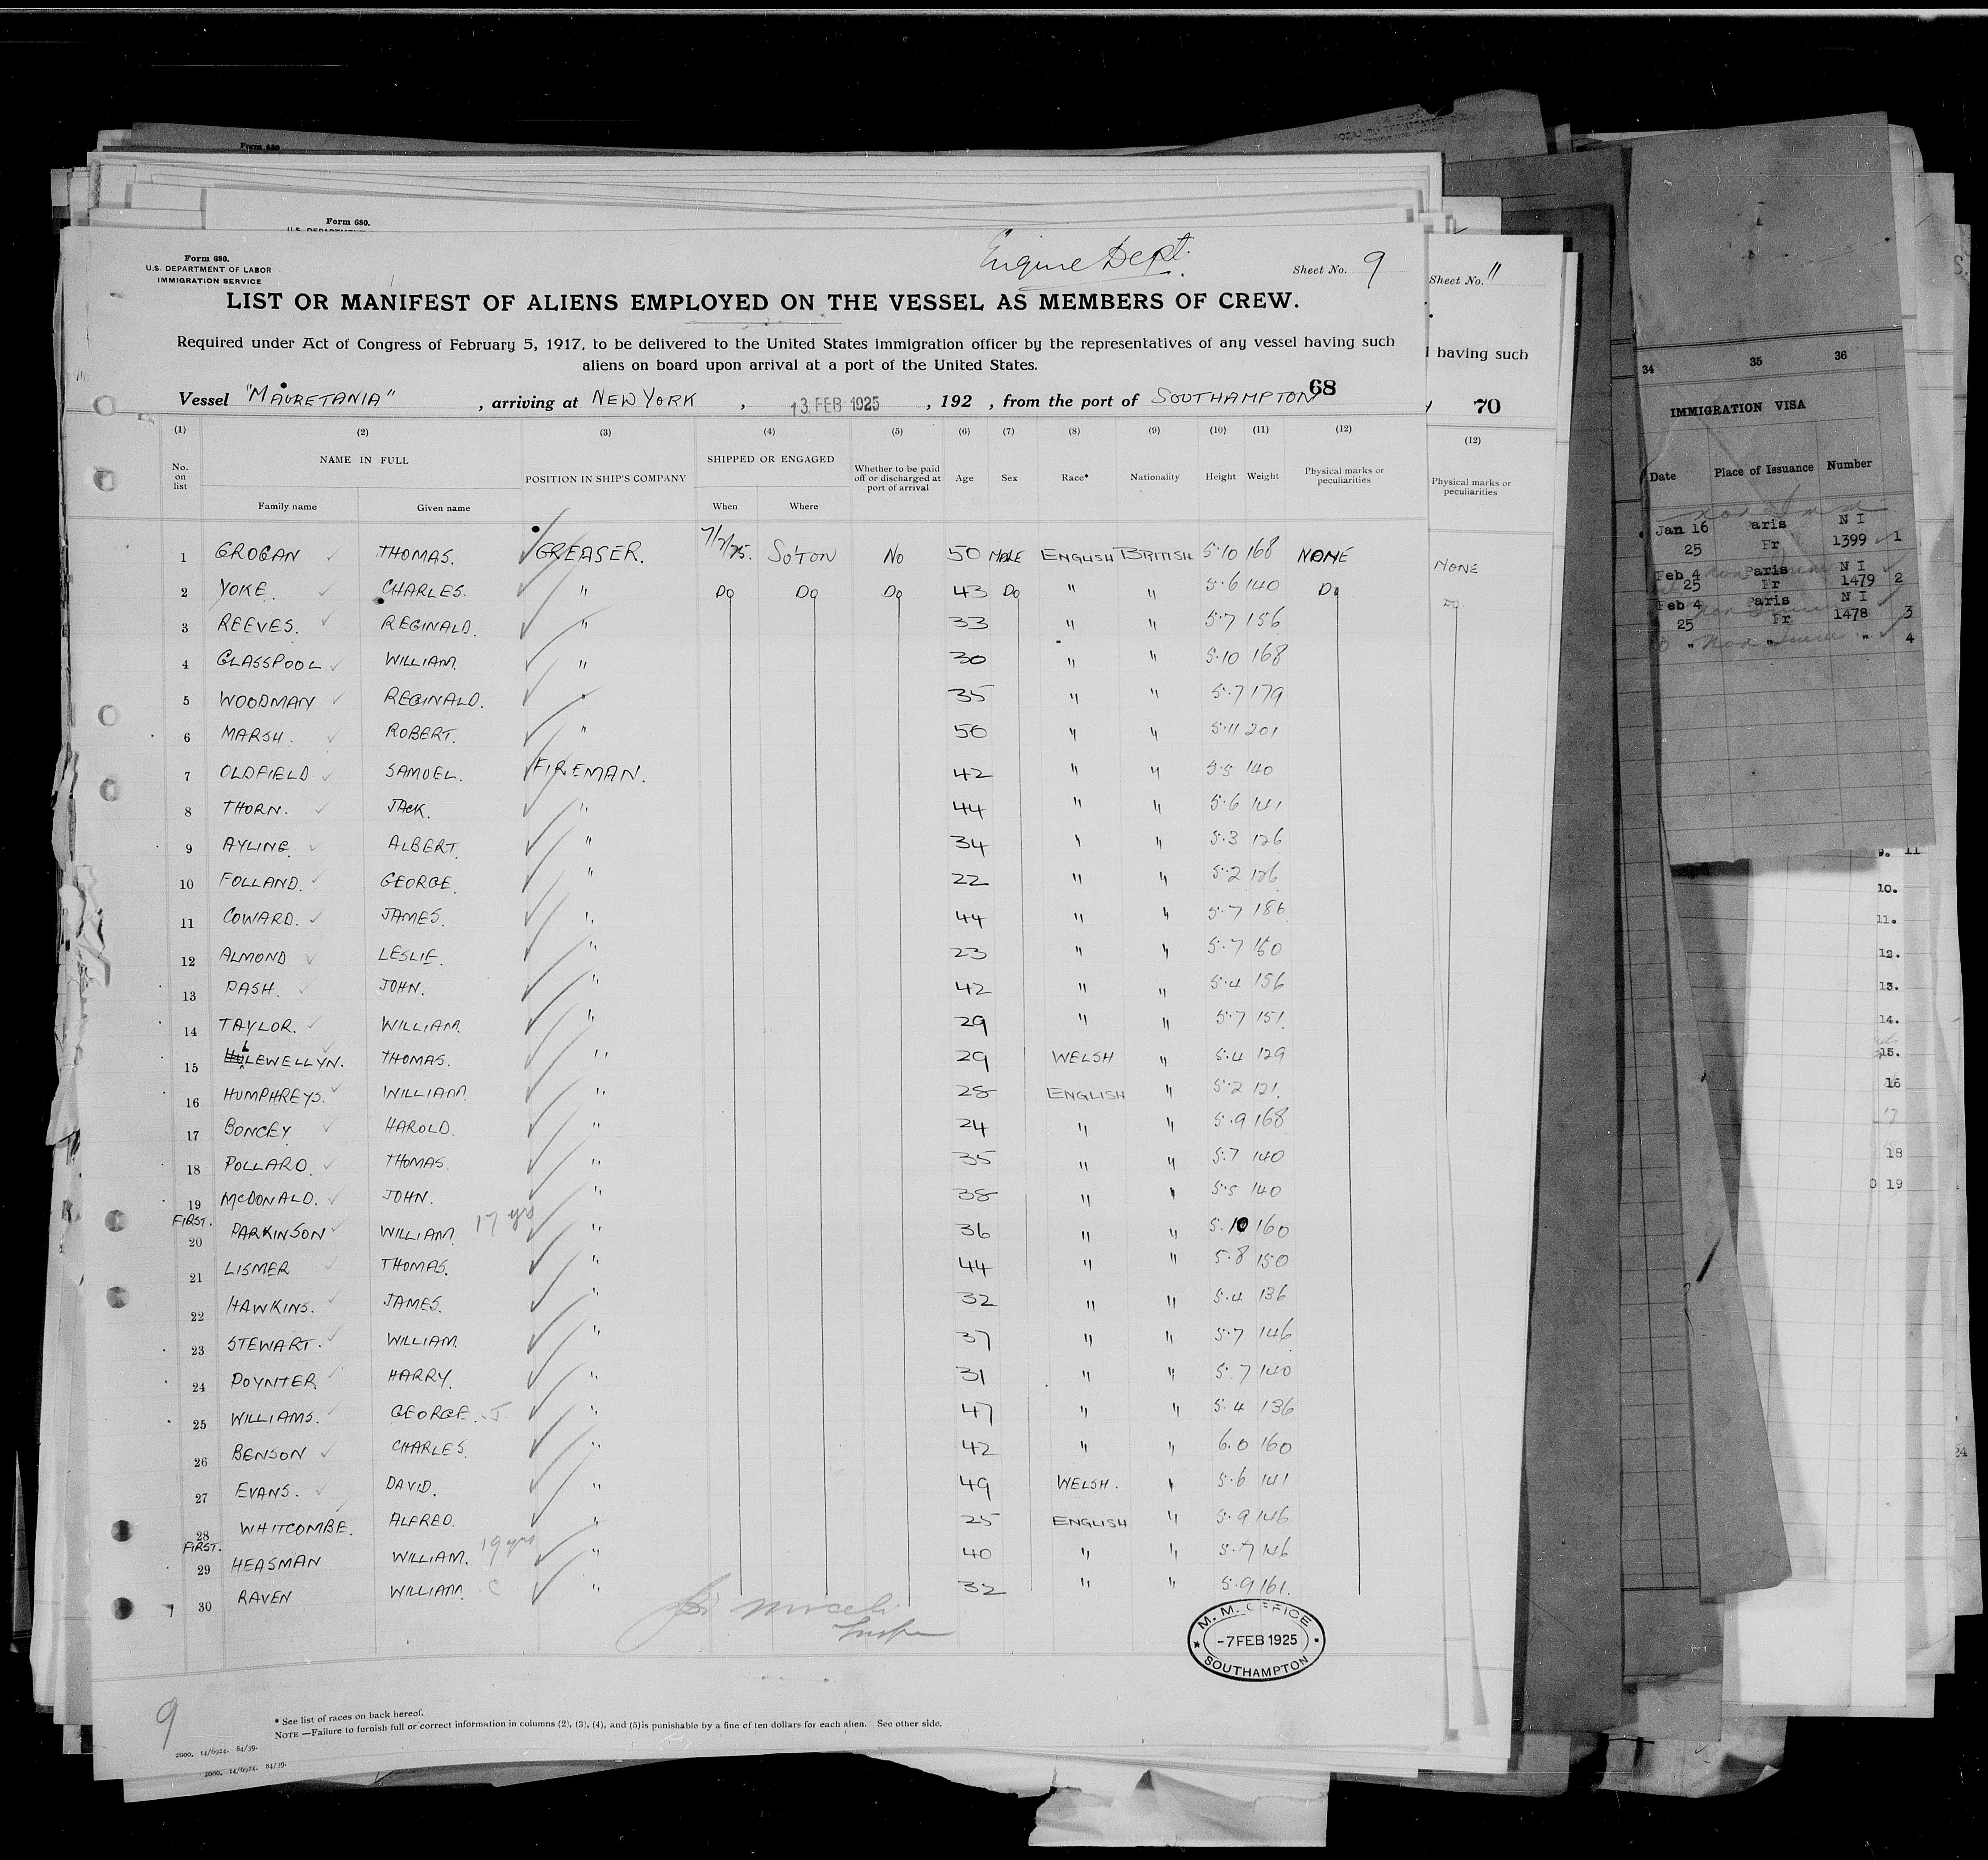 Form 680.
Form 680.
Form 680.
U.S. DEPARTMENT OF LABOR
IMMIGRATION SERVICE
Engine Dept.
Sheet No. 9
LIST OR MANIFEST OF ALIENS EMPLOYED ON THE VESSEL AS MEMBERS OF CREW.
Required under Act of Congress of February 5, 1917, to be delivered to the United States immigration officer by the representatives of any vessel having such
aliens on board upon arrival at a port of the United States.
Vessel "MAURETANIA" , arriving at NEW YORK , 13 FEB 1925 , 192 , from the port of SOUTHAMPTON 68
(1) (2) (3) (4) (5) (6) (7) (8) (9) (10) (11) (12)
No. on list NAME IN FULL POSITION IN SHIP'S COMPANY SHIPPED OR ENGAGED Whether to be paid off or discharged at port of arrival Age Sex Race* Nationality Height Weight Physical marks or peculiarities
Family name Given name When Where
1 GROGAN THOMAS. GREASER. 7/2/25. SO'TON NO 50 MALE ENGLISH BRITISH 5.10 168 NONE
2 YOKE. CHARLES. " DO DO DO 43 DO " " 5.6 140 DO
3 REEVES. REGINALD. " 33 " " 5.7 156
4 GLASSPOOL WILLIAM. " 30 " " 5.10 168
5 WOODMAN REGINALD. " 35 " " 5.7 179
6 MARSH. ROBERT. " 50 " " 5.11 201
7 OLDFIELD SAMUEL. FIREMAN. 42 " " 5.5 140
8 THORN. JACK. " 44 " " 5.6 141
9 AYLING. ALBERT. " 34 " " 5.3 126
10 FOLLAND. GEORGE. " 22 " " 5.2 126
11 COWARD. JAMES. " 44 " " 5.7 186
12 ALMOND LESLIE. " 23 " " 5.7 150
13 DASH. JOHN. " 42 " " 5.4 156
14 TAYLOR. WILLIAM. " 29 " " 5.7 151.
15 LLEWELLYN. THOMAS. " 29 WELSH " 5.4 129
16 HUMPHREYS. WILLIAM. " 28 ENGLISH " 5.2 121.
17 BONCEY HAROLD. " 24 " " 5.9 168
18 POLLARD. THOMAS. " 35 " " 5.7 140
19 MCDONALD. JOHN. " 38 " " 5.5 140
FIRST.
20 PARKINSON WILLIAM. 17 yrs " 36 " " 5.10 160
21 LISMER THOMAS. " 44 " " 5.8 150
22 HAWKINS. JAMES. " 32 " " 5.4 136
23 STEWART. WILLIAM. " 37 " " 5.7 146
24 POYNTER HARRY. " 31 " " 5.7 140
25 WILLIAMS. GEORGE. J " 47 " " 5.4 136
26 BENSON CHARLES. " 42 " " 6.0 160
27 EVANS. DAVID. " 49 WELSH. " 5.6 141
28 WHITCOMBE. ALFRED. " 25 ENGLISH " 5.9 146
FIRST.
29 HEASMAN WILLIAM. 19 yrs " 40 " " 5.7 146
30 RAVEN WILLIAM C " 32 " " 5.9 161.
M. M. OFFICE
-7 FEB 1925
SOUTHAMPTON
9
* See list of races on back hereof.
NOTE —Failure to furnish full or correct information in columns (2), (3), (4), and (5) is punishable by a fine of ten dollars for each alien. See other side.
2000. 14/6924. 84/39.
2000. 14/6924. 84/39.
Sheet No. 11
having such
70
(12)
Physical marks or
peculiarities
NONE
DO
34 35 36
IMMIGRATION VISA
Date Place of Issuance Number
Jan 16 Paris N I
25 Fr 1399 1
Feb 4 Paris N I
25 Fr 1479 2
Feb 4 Paris N I
25 Fr 1478 3
" " 4
9. 11
10.
11.
12.
13.
14.
15.
16
17
18
19
24